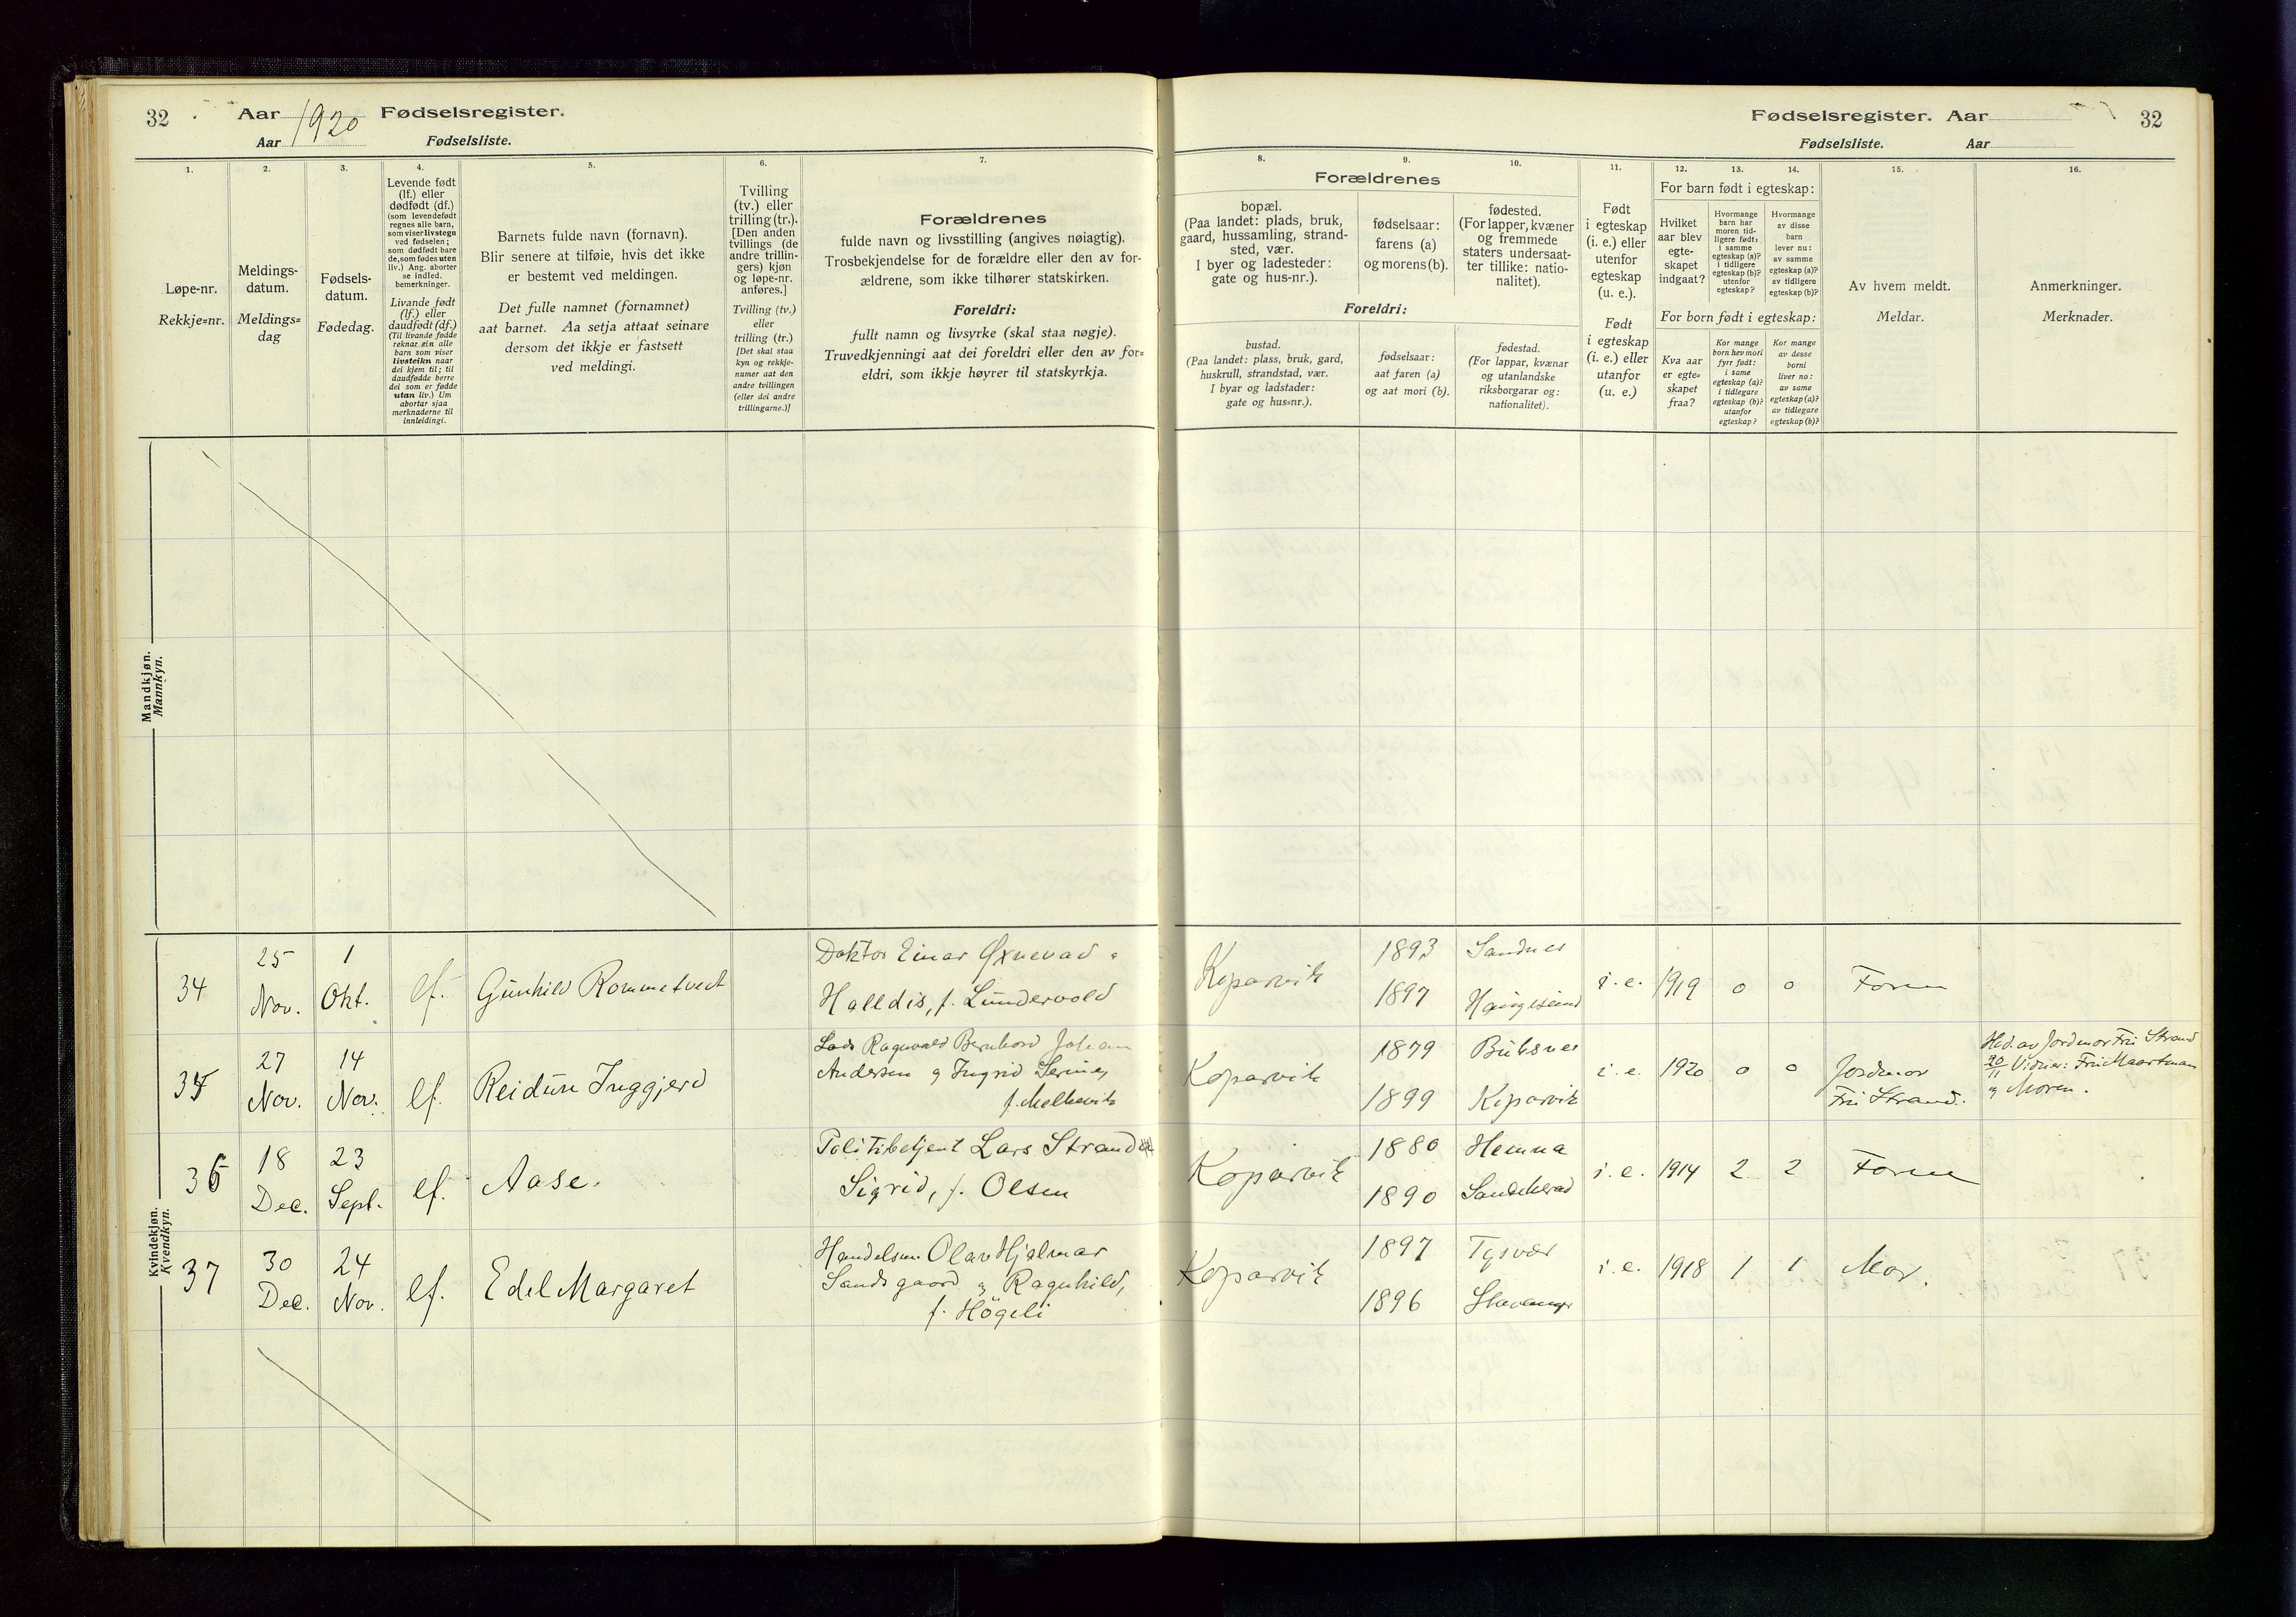 32
Aar 1920 Fødselsregister.
Aar Fødselsliste.
Fødselsregister. Aar
32
Fødselsliste. Aar
1.
Løpe-nr.
Rekkje=nr.
2.
Meldings-
datum.
Meldings=
dag
3.
Fødsels-
datum.
Fødedag.
4.
Levende født
(lf.) eller
dødfødt (df.)
(som levendefødt
regnes alle barn,
som viser livstegn
ved fødselen;
som dødfødt bare
de, som fødes uten
liv.) Ang. aborter
se indled.
bemerkninger.
Livande født
(lf.) eller
daudfødt (df.)
(Til livande fødde
reknar ein alle
barn som viser
livsteikn naar
dei kjem til; til
daudfødde berre
dei som er fødde
utan liv.) Um
abortar sjaa
merknaderne til
innleidingi.
5.
Barnets fulde navn (fornavn).
Blir senere at tilføie, hvis det ikke
er bestemt ved meldingen.
Det fulle namnet (fornamnet)
aat barnet. Aa setja attaat seinare
dersom det ikkje er fastsett
ved meldingi.
6.
Tvilling
(tv.) eller
trilling (tr.).
[Den anden
tvillings (de
andre trillin-
gers) kjøn
og løpe-nr.
anføres.]
Tvilling (tv.)
eller
trilling (tr.)
[Det skal staa
kyn og rekkje-
numer aat den
andre tvillingen
(eller dei andre
trillingarne.)]
7.
Forældrenes
fulde navn og livsstilling (angives nøiagtig).
Trosbekjendelse for de forældre eller den av for-
ældrene, som ikke tilhører statskirken.
Foreldri:
fullt namn og livsyrke (skal staa nøgje).
Truvedkjenningi aat dei foreldri eller den av for=
eldri, som ikkje høyrer til statskyrkja.
Forældrenes
8.
bopæl.
(Paa landet: plads, bruk,
gaard, hussamling, strand-
sted, vær.
I byer og ladesteder:
gate og hus-nr.).
9.
fødselsaar:
farens (a)
og morens (b).
10.
fødested.
(For lapper, kvæner
og fremmede
staters undersaat-
ter tillike: natio-
nalitet).
Foreldri:
bustad.
(Paa landet: plass, bruk, gard,
huskrull, strandstad, vær.
I byar og ladstader:
gate og hus=nr.).
fødselsaar:
aat faren (a)
og aat mori (b).
fødestad.
(For lappar, kvænar
og utanlandske
riksborgarar og:
nationalitet).
11.
Født
i egteskap
(i. e.) eller
utenfor
egteskap
(u. e.).
Født
i egteskap
(i. e.) eller
utanfor
(u. e.)
12. 13. 14.
For barn født i egteskap:
Hvilket
aar blev
egte-
skapet
indgaat?
Hvormange
barn har
moren tid-
ligere født:
i samme
egteskap (a)?
i tidligere
egteskap (b)?
utenfor
egteskap?
Hvormange
av disse
barn
lever nu:
av samme
egteskap (a)?
av tidligere
egteskap (b)?
For born født i egteskap:
Kva aar
er egte=
skapet
fraa?
Kor mange
born hev mori
fyrr født:
i same
egteskap (a)?
i tidlegare
egteskap (b)?
utanfor
egteskap?
Kor mange
av desse
borni
liver no:
av same
egteskap (a)?
av tidlegare
egteskap (b)?
15.
Av hvem meldt.
Meldar.
16.
Anmerkninger.
Merknader.
Mandkjøn.
Mannkyn.
Kvindekjøn.
Kvendkyn.
34 25 Nov. 1 Okt. lf. Gunhild Rommetvedt
Doktor Einar Øxnevad
Halldis, f. Lundervold
Kopervik 1893 Sandnes
1897 Haugesund
i. e. 1919 0 0 Faren
35 27 Nov. 14 Nov. lf. Reidun Inggjerd
Lods Ragnvald Bernhard Johan
Andersen og Ingrid Serine,
f. Melkevik
Kopervik 1879 Buksnes
1899 Kopervik
i. e. 1920 0 0 Jordmor
Fru Strand.
Hd. av Jordmor Fru Strand
20/11 Vidner: Fru Maartman
og Moren.
36 18 Dec. 23 Sept. lf. Aase.
Politibetjent Lars Strand
Sigrid, f. Olsen
Kopervik 1880 Hemna
1890 Sandeherad
i. e. 1914 2 2 Faren
37 30 Dec. 24 Nov. lf. Edel Margaret
Handelsm Olav Hjalmar
Sandsgaard og Ragnhild,
f. Högeli
Kopervik 1897 Tysvær
1896 Stavanger
i. e. 1918 1 1 Mor.